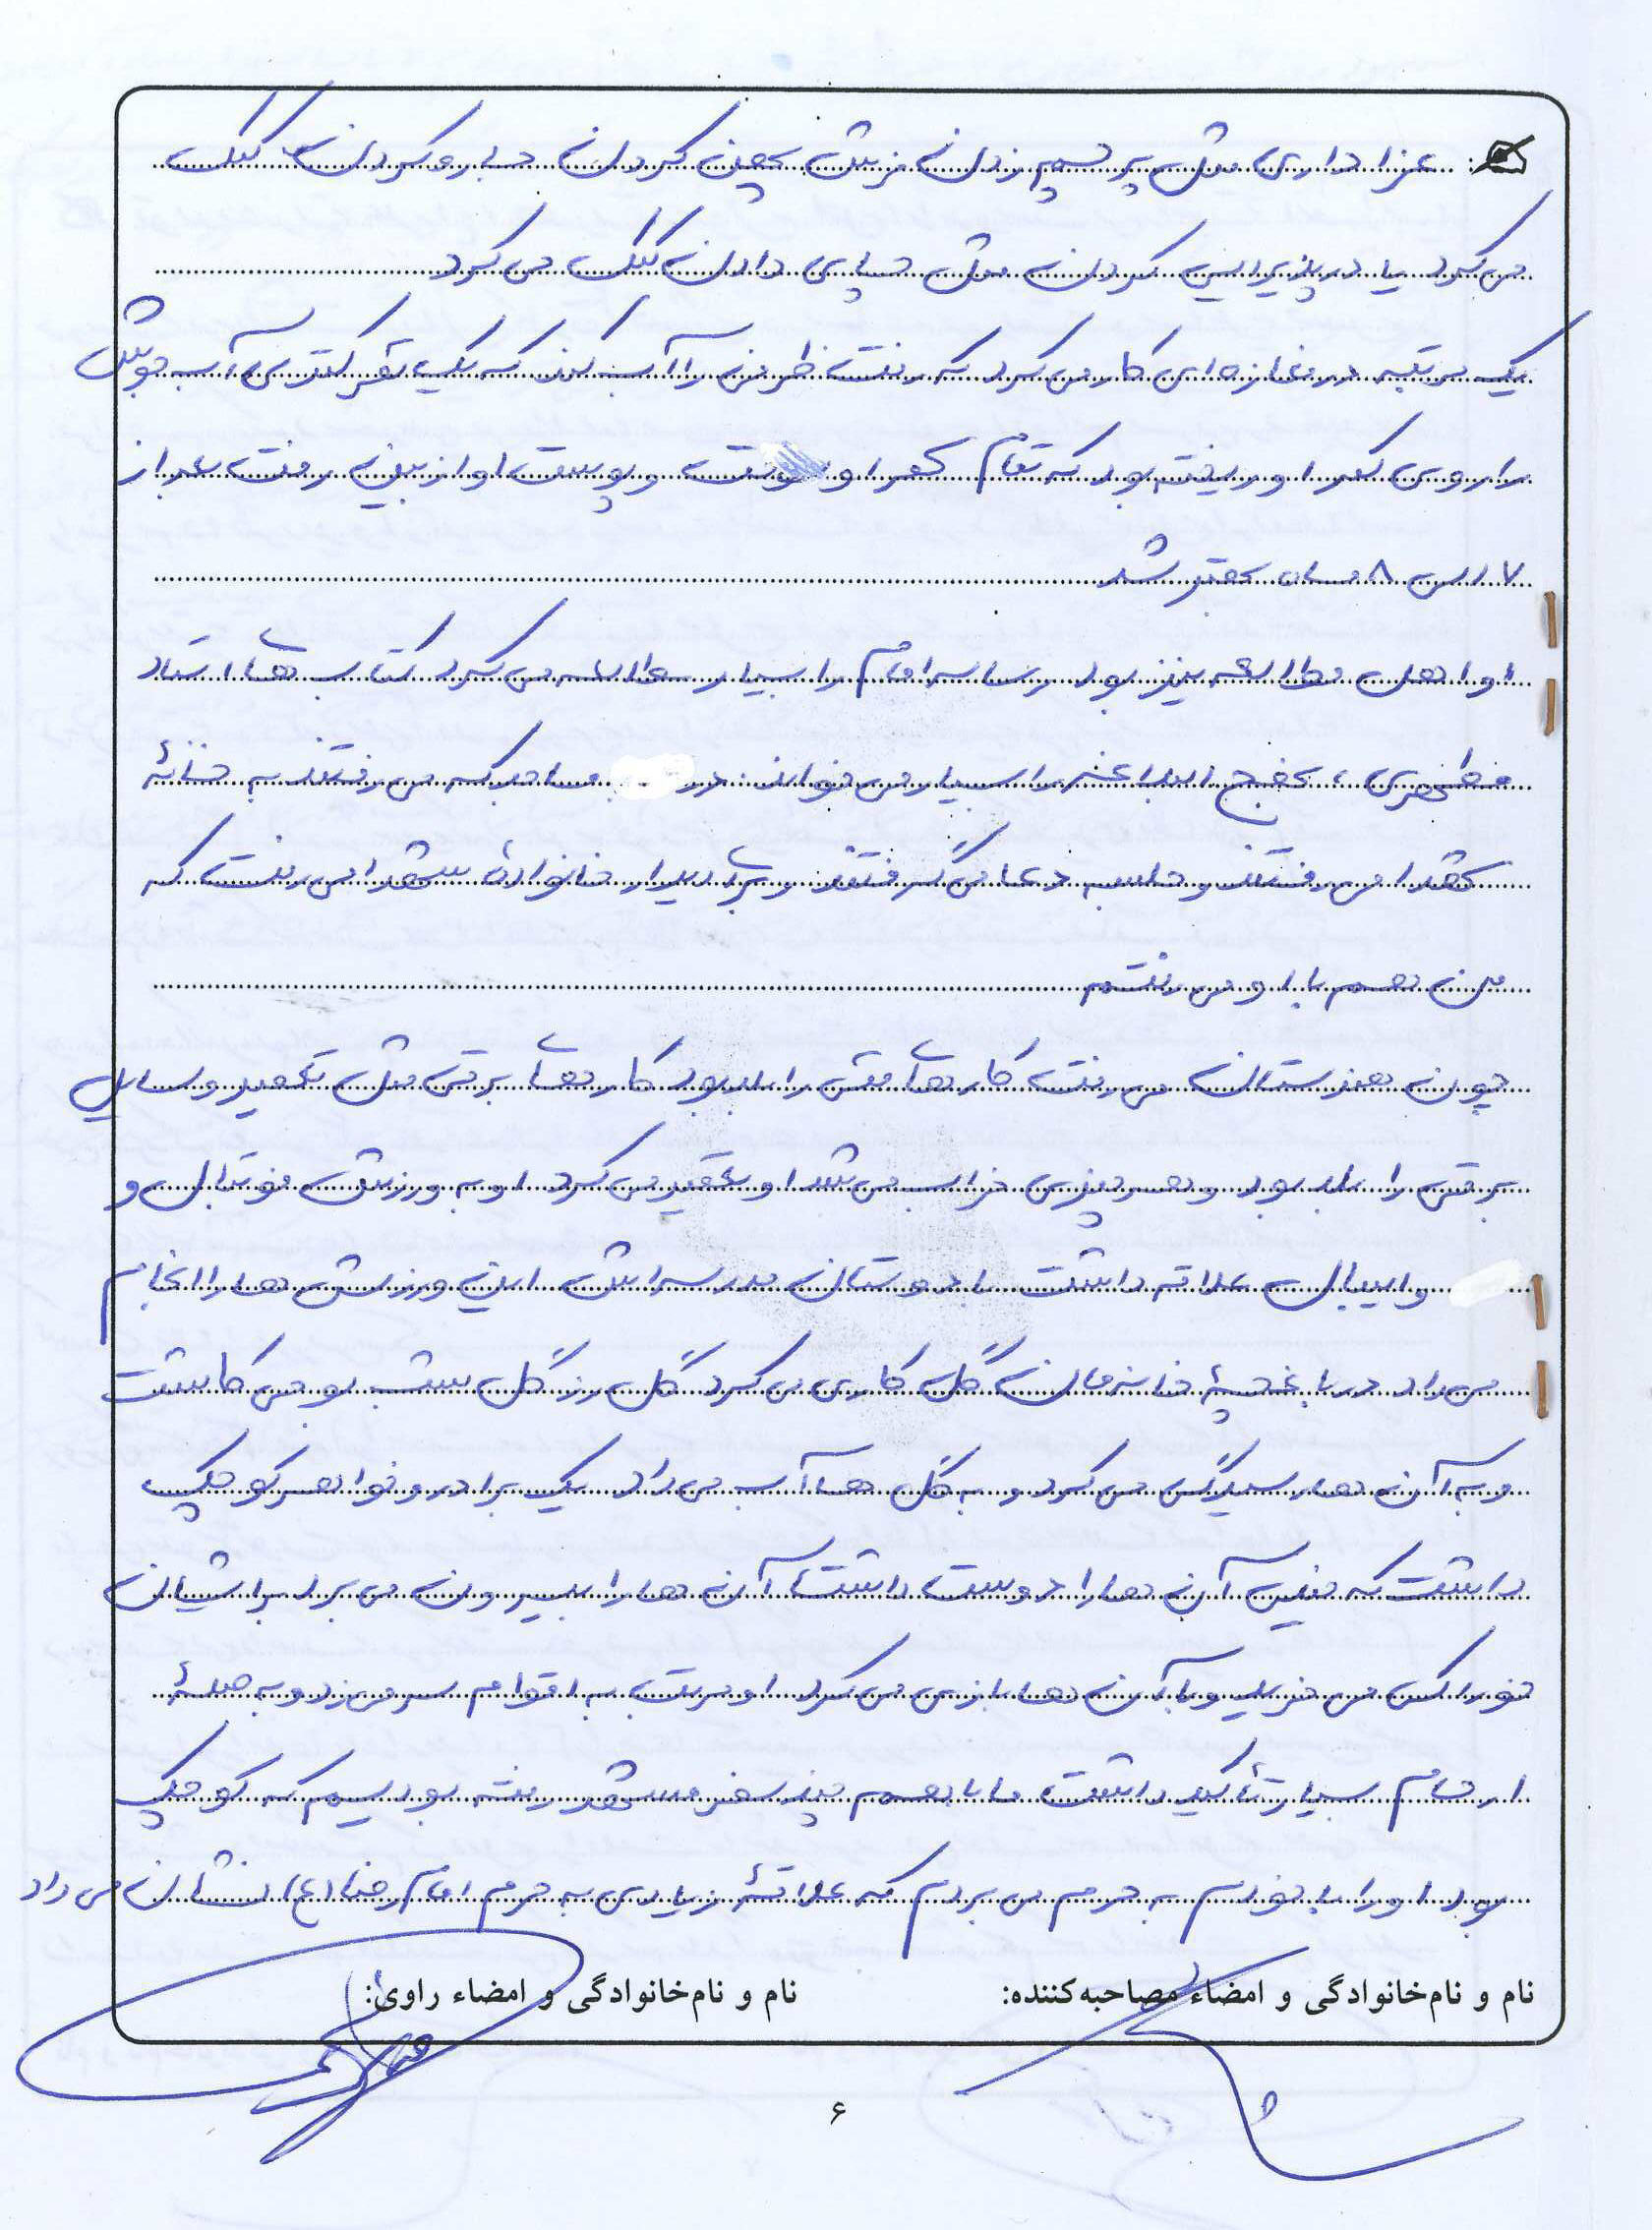 عزاداری مثل پرچم زدن فرش پهن کردن جارو کردن کمک
می کرد یا در پذیرایی کردن مثل چای دادن کمک می کرد
یک مرتبه در مغازه ای کار می کرد که رفت ظرفی را آب کند که یک نفر کتری آب جوش
را روی کمر او ریخته بود که تمام کمر او سوخت و پوست او از بین رفت بعد از
۷ الی ۸ ماه بهتر شد
او اهل مطالعه نیز بود رساله امام را بسیار مطالعه می کرد کتاب های استاد
مطهری، نهج البلاغه را بسیار می خواند. در مساجد که می رفتند به خانهٔ
شهدا می رفتند و جلسه دعا می گرفتند و به دیدار خانوادهٔ شهدا می رفت که
من هم با او می رفتم
چون هنرستان می رفت کارهای فنی را بلد بود کارهای برقی مثل تعمیر وسایل
برقی را بلد بود و هر چیزی خراب می شد او تعمیر می کرد. او به ورزش فوتبال و
والیبال علاقه داشت با دوستان مدرسه اش این ورزش ها را انجام
می داد در باغچهٔ خانه مان گل کاری می کرد گل رز گل شب بو می کاشت
و به آن ها رسیدگی می کرد و به گل ها آب می داد. یک برادر و خواهر کوچک
داشت که خیلی آن ها را دوست داشت آن ها را بیرون می برد برایشان
خوراکی می خرید و با آن ها بازی می کرد. او مرتب به اقوام سر می زد و به صلهٔ
ارحام بسیار تأکید داشت ما با هم چند سفر مشهد رفته بودیم که کوچک
بود او را با خودم به حرم می بردم که علاقهٔ زیادی به حرم امام رضا (ع) نشان می داد
نام و نام‌خانوادگی و امضاء مصاحبه‌کننده: نام و نام‌خانوادگی و امضاء راوی:
۶